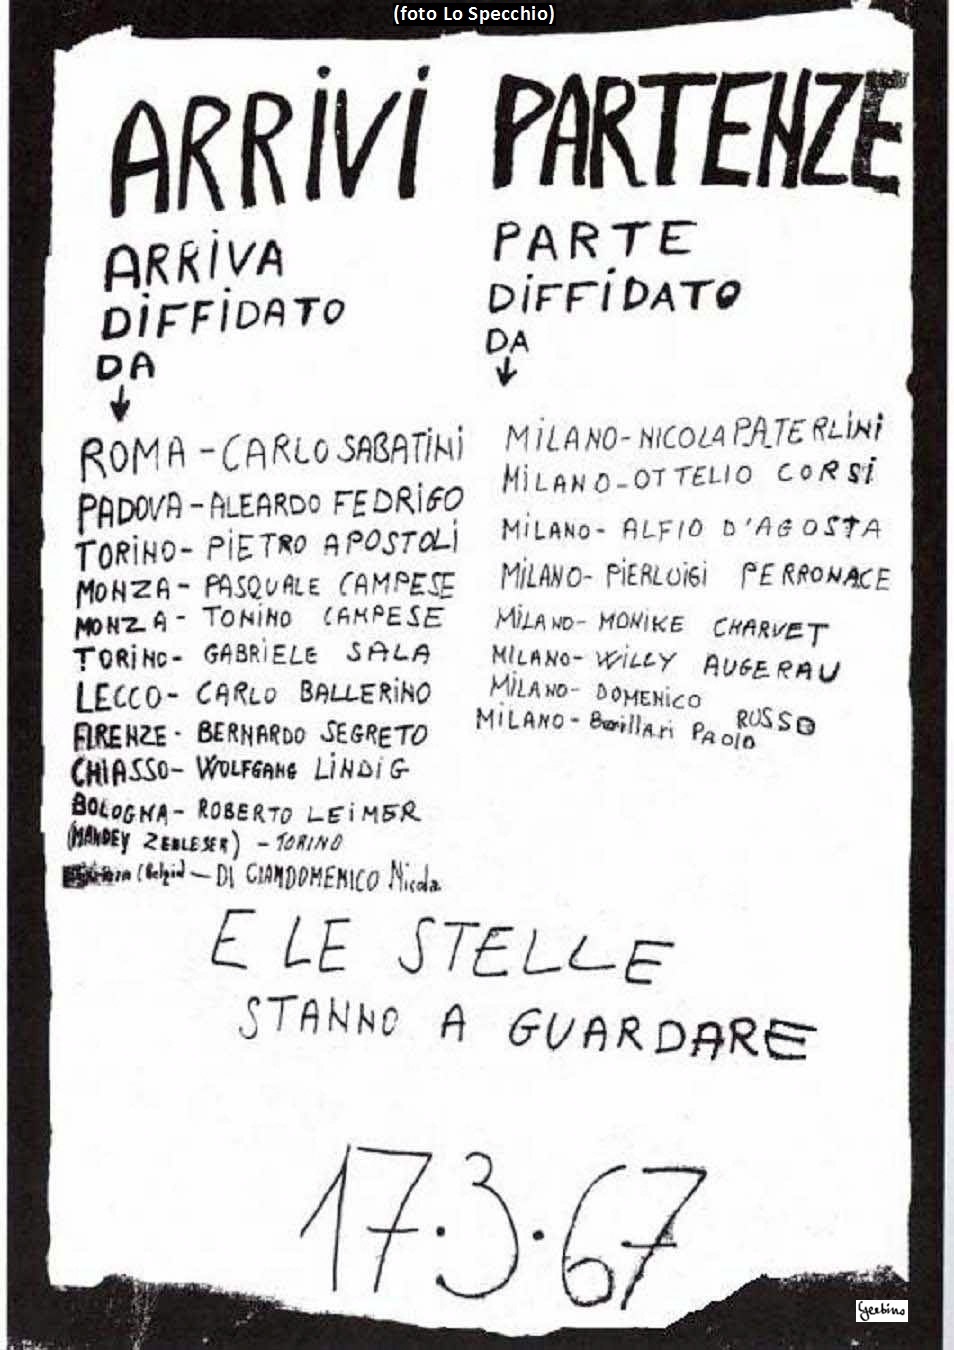 (foto Lo Specchio)
ARRIVI PARTENZE
ARRIVA
DIFFIDATO
DA
ROMA - CARLO SABATINI
PADOVA - ALEARDO FEDRIGO
TORINO - PIETRO APOSTOLI
MONZA - PASQUALE CAMPESE
MONZA - TONINO CAMPESE
TORINO - GABRIELE SALA
LECCO - CARLO BALLERINO
FIRENZE - BERNARDO SEGRETO
CHIASSO - WOLFGANG LINDIG
BOLOGNA - ROBERTO LEIMER
(MANDEY ZEBLESER) - TORINO
(Belgio) - DI GIANDOMENICO Nicola
PARTE
DIFFIDATO
DA
MILANO - NICOLA PATERLINI
MILANO - OTTELIO CORSI
MILANO - ALFIO D'AGOSTA
MILANO - PIERLUIGI PERRONACE
MILANO - MONIKE CHARVET
MILANO - WILLY AUGERAU
MILANO - DOMENICO RUSSO
MILANO - Barillari PAOlO
E LE STELLE
STANNO A GUARDARE
17.3.67
Geebino